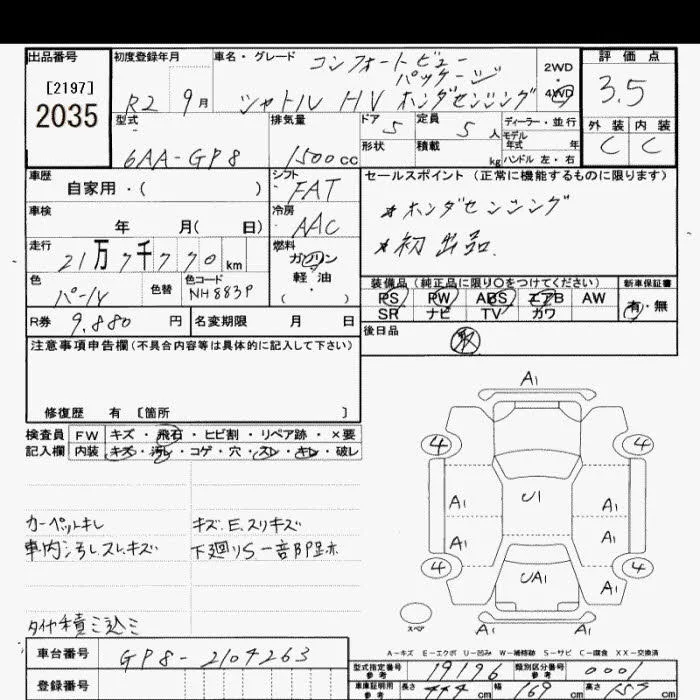 出品番号
[2197]
2035
初度登録年月
R2 9月
車名・グレード
コンフォートビュー
パッケージ
シャトル HV ホンダセンシング
2WD
・
4WD
評価点
3.5
外装 内装
C C
型式
6AA-GP8
排気量
1500cc
ドア 5
定員 5人
ディーラー・並行
モデル
年式 年
形状
積載 kg
ハンドル 左・右
車歴
自家用・( )
シフト
FAT
セールスポイント(正常に機能するものに限ります)
*ホンダセンシング
*初出品.
車検
年 月( 日)
冷房
AAC
走行
21万7千770km
燃料
ガソリン
軽・油
・
( )
色
パール
色替
色コード
NH883P
装備品(純正品に限り○をつけてください)
PS PW ABS エアB AW
SR ナビ TV カワ
新車保証書
有・無
R券 9.880円
名変期限 月 日
後日品
取
注意事項申告欄(不具合内容等は具体的に記入して下さい)
修復歴 有 [箇所 ]
検査員
記入欄
FW キズ・飛石・ヒビ割・リペア跡・×要
内装 キズ・汚レ・コゲ・穴・スレ・キレ・破レ
カーペットキレ
キズ.E.スリキズ
車内汚レスレキズ
下廻りS一部跡
タイヤ積ミ込ミ
A1
4 4
U1
A1 A1
A1 A1
4 4
UA1
A1
A1
スペア
A-キズ E-エクボ U-凹み W-補修跡 S-サビ C-腐食 XX-交換済
車台番号
GP8-2104263
登録番号
型式指定番号
参考
19196
類別区分番号
参考
0001
車庫証明用
参考
長さ 444cm
幅 169cm
高さ cm